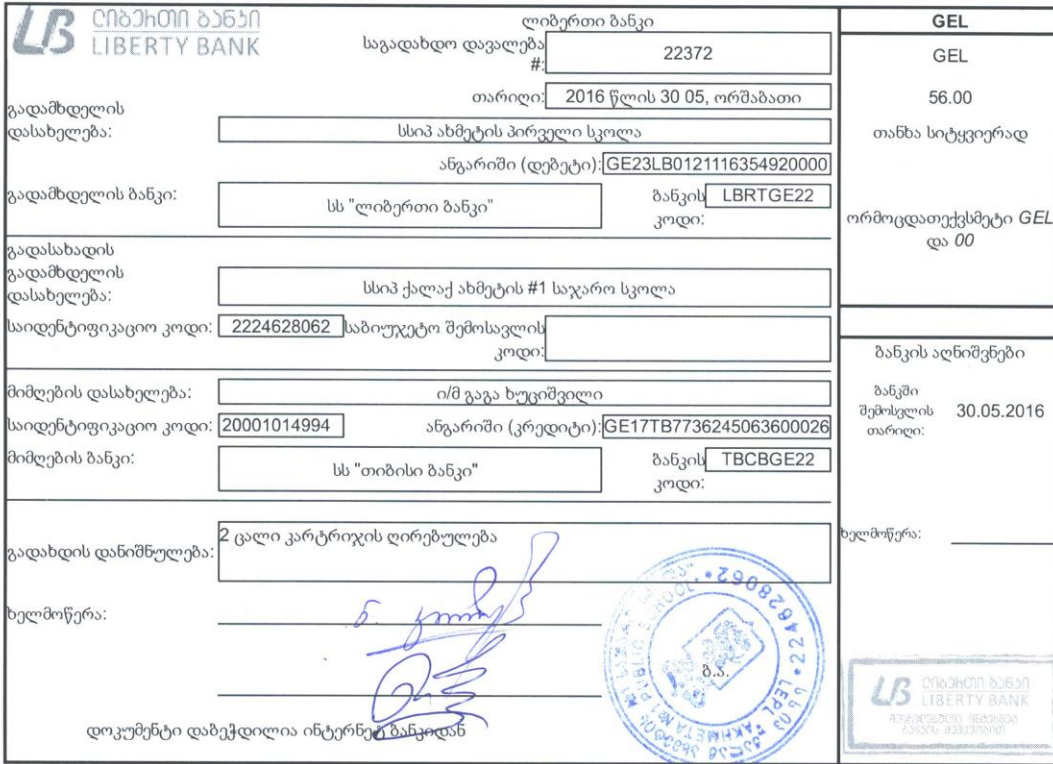 ლიბერთი ბანკი
LIBERTY BANK
ლიბერთი ბანკი
საგადახდო დავალება #: 22372
თარიღი: 2016 წლის 30 05, ორშაბათი
გადამხდელის დასახელება: სსიპ ახმეტის პირველი სკოლა
ანგარიში (დებეტი): GE23LB0121116354920000
გადამხდელის ბანკი: სს "ლიბერთი ბანკი" ბანკის კოდი: LBRTGE22
გადასახადის გადამხდელის დასახელება: სსიპ ქალაქ ახმეტის #1 საჯარო სკოლა
საიდენტიფიკაციო კოდი: 2224628062 საბიუჯეტო შემოსავლის კოდი:
მიმღების დასახელება: ი/მ გაგა ხუციშვილი
საიდენტიფიკაციო კოდი: 20001014994 ანგარიში (კრედიტი): GE17TB7736245063600026
მიმღების ბანკი: სს "თიბისი ბანკი" ბანკის კოდი: TBCBGE22
გადახდის დანიშნულება: 2 ცალი კარტრიჯის ღირებულება
ხელმოწერა:
ბ.ა.
დოკუმენტი დაბეჭდილია ინტერნეტ ბანკიდან
GEL
GEL
56.00
თანხა სიტყვიერად
ორმოცდათექვსმეტი GEL
და 00
ბანკის აღნიშვნები
ბანკში შემოსვლის თარიღი: 30.05.2016
ხელმოწერა:
ლიბერთი ბანკი
LIBERTY BANK